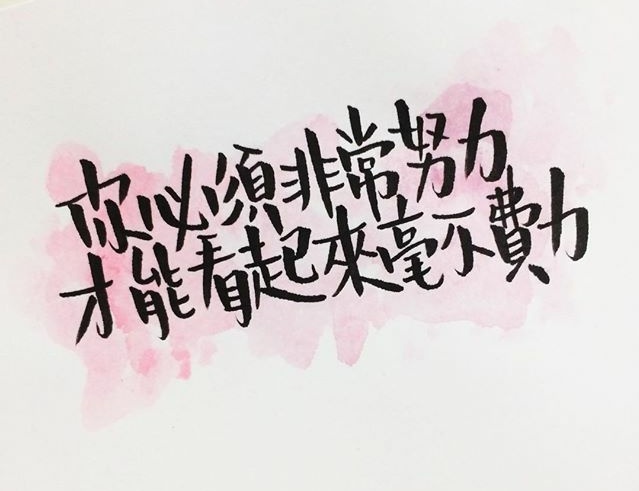 你必須非常努力
才能看起來毫不費力